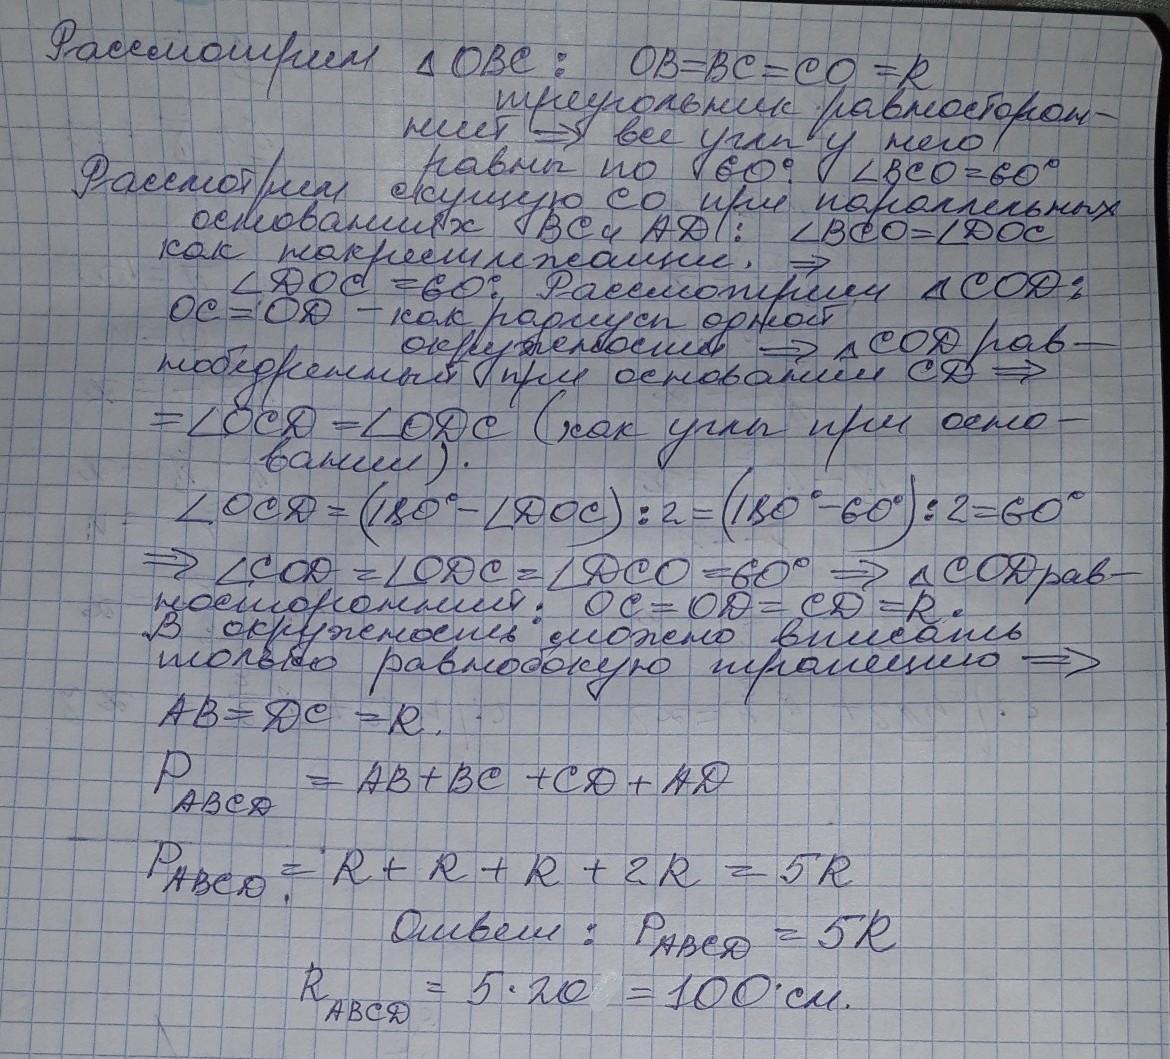 Рассмотрим △OBC: OB=BC=CO=R
треугольник равносторон-
ний ⇒ все углы у него
равны по 60°. ∠BCO=60°
Рассмотрим секущую CO при параллельных
основаниях BC и AD: ∠BCO=∠DOC
как накрестлежащие. ⇒
∠DOC=60°. Рассмотрим △COD:
OC=OD – как радиусы одной
окружности ⇒ △COD рав-
нобедренный при основании CD ⇒
=∠OCD=∠ODC (как углы при осно-
вании).
∠OCD=(180°-∠DOC):2=(180°-60°):2=60°
⇒ ∠COD=∠ODC=∠DCO=60° ⇒ △COD рав-
носторонний: OC=OD=CD=R.
В окружность можно вписать
только равнобокую трапецию ⇒
AB=DC=R.
P_ABCD = AB+BC+CD+AD
P_ABCD = R+R+R+2R = 5R
Ответ: P_ABCD = 5R
R_ABCD = 5·20 = 100 см.